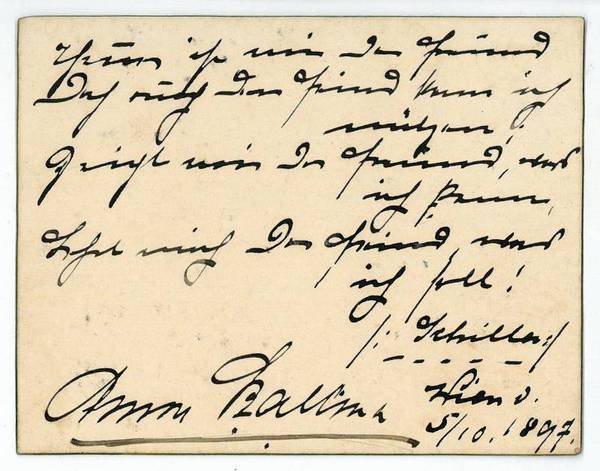 Theuer ist mir der Freund
Doch auch den Feind kann ich
nützen;
Zeigt mir der Freund, was
ich kann,
Lehrt mich der Feind, was
ich soll!
/: Schiller :/
Wien d.
5/10. 1897.